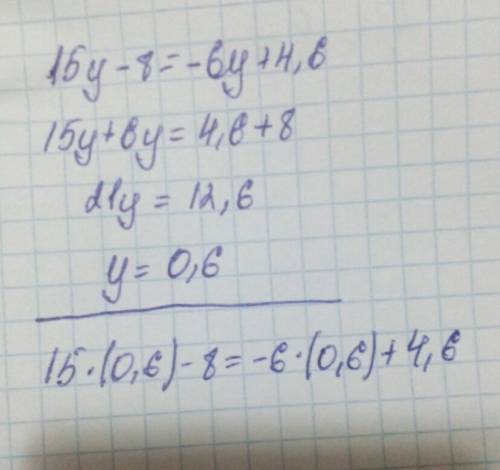 15y - 8 = -6y + 4,6
15y + 6y = 4,6 + 8
21y = 12,6
y = 0,6
15·(0,6) - 8 = -6·(0,6) + 4,6